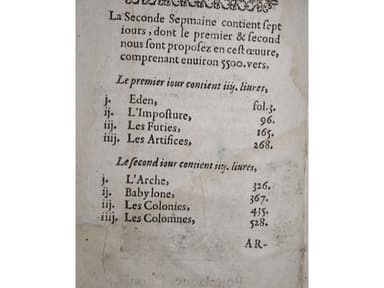 La Seconde Sepmaine contient sept
iours, dont le premier & second
nous sont proposez en cest œuure,
comprenant enuiron 5500. vers.
Le premier iour contient iiij. liures,
j. Eden, fol.3.
ij. L'Imposture, 96.
iij. Les Furies, 165.
iiij. Les Artifices, 268.
Le second iour contient iiij. liures,
j. L'Arche, 326.
ij. Babylone, 367.
iij. Les Colonies, 435.
iiij. Les Colomnes, 528.
AR-